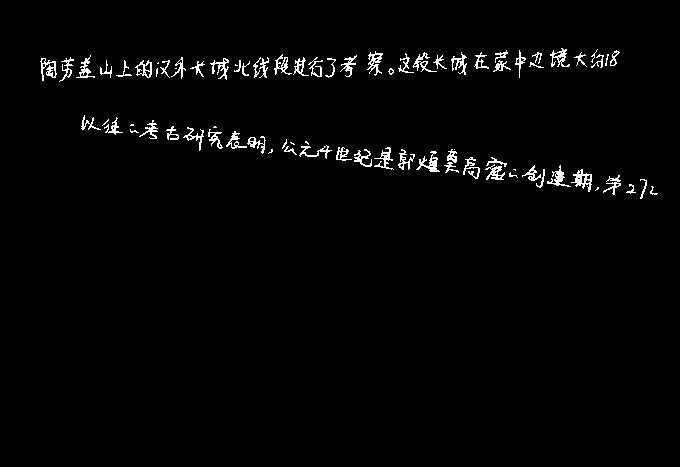 陶劳盖山上的汉外长城北线段进行了考察。这段长城在蒙中边境大约18
以往的考古研究表明,公元4世纪是敦煌莫高窟的创建期,第272